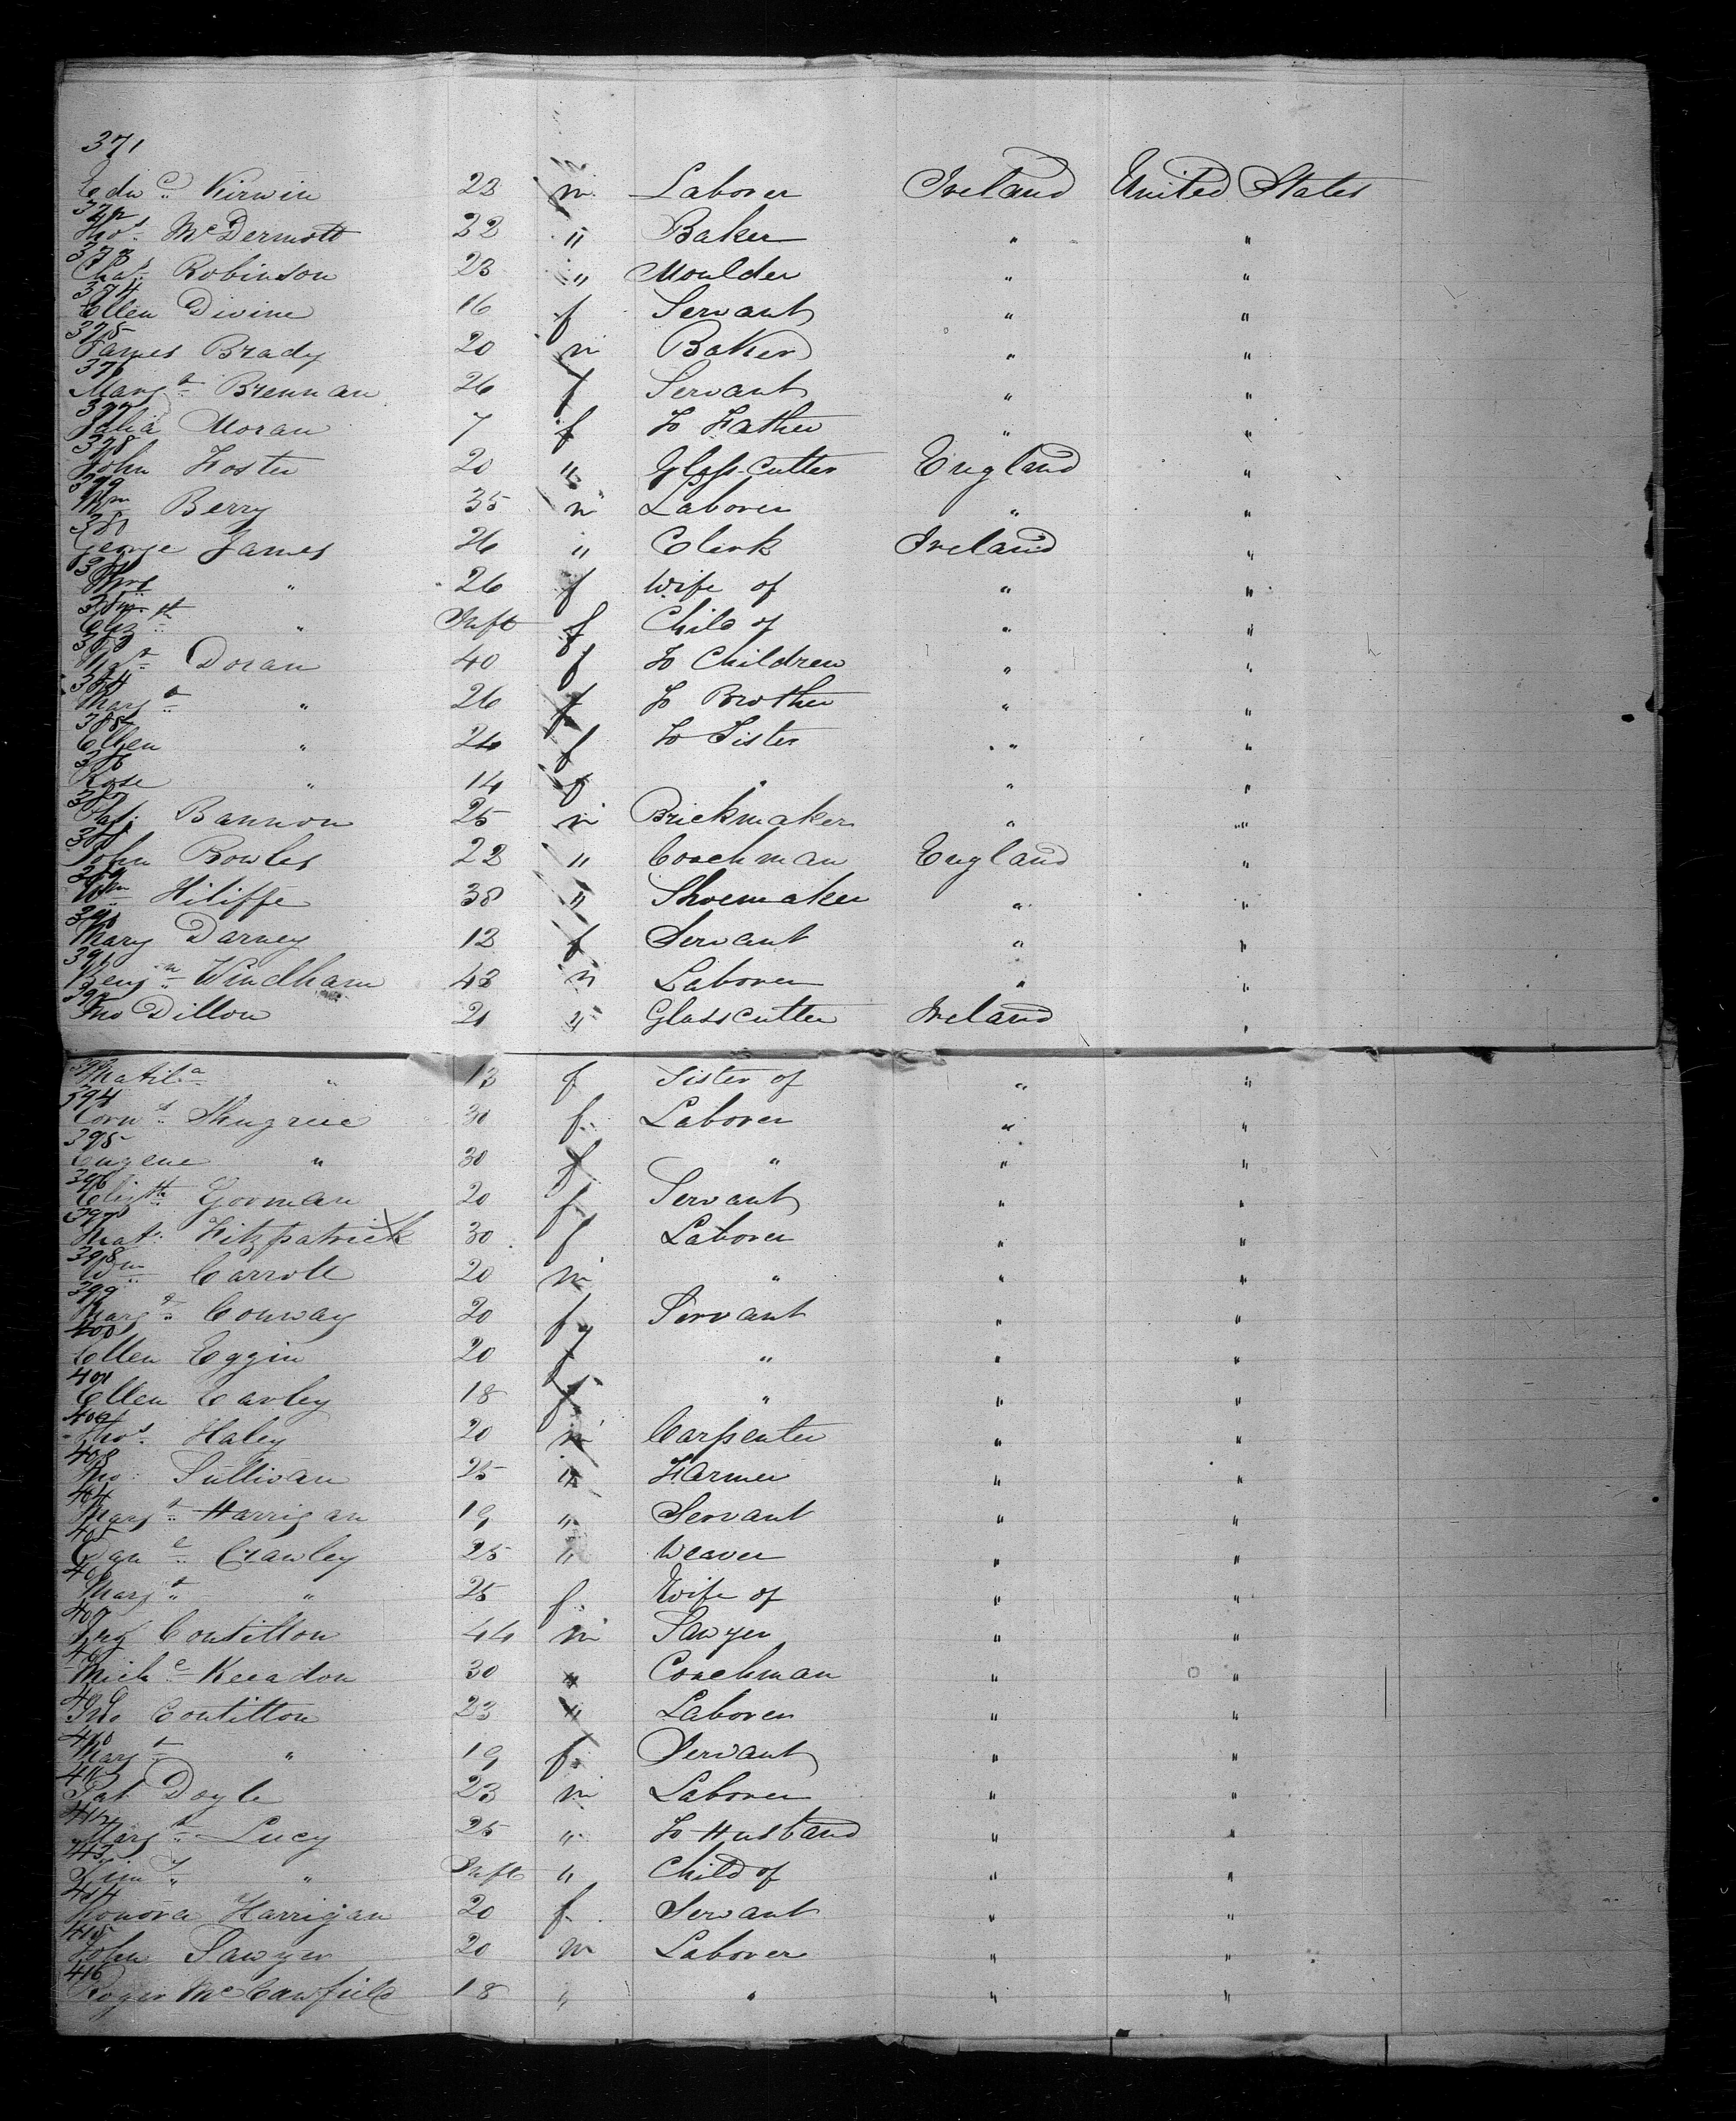 371
Edwd Kirwin 23 m Laborer Ireland United States
372
Thos McDermott 22 " Baker " "
373
Chas Robinson 23 " Moulder " "
374
Ellen Divine 16 f Servant " "
375
James Brady 20 m Baker " "
376
Margt Brennan 26 f Servant " "
377
Julia Moran 7 f To Father " "
378
John Foster 20 " Glass Cutter England "
379
Wm Berry 35 m Laborer " "
380
George James 26 " Clerk Ireland "
381
" 26 f Wife of " "
382
Elizth " Inft f Child of " "
383
Doran 40 f To Children " "
384
Margt " 26 f To Brother " "
385
Ellen " 24 f To Sister " "
386
Rose " 14 f " " "
387
Pat. Bannon 25 m Brickmaker " "
388
John Bowles 22 " Coachman England "
389
Wm Hiliffe 38 " Shoemaker " "
390
Mary Darney 13 f Servant " "
391
Benjn Windham 43 m Laborer " "
392
Jno Dillon 21 " Glass cutter Ireland "
393
Matila " 13 f Sister of " "
394
Corns Shugrue 30 f Laborer " "
395
Eugene " 30 f " " "
396
Elizth Gorman 20 f Servant " "
397
Mat. Fitzpatrick 30 f Laborer " "
398
Wm Carroll 20 m " " "
399
Margt Conway 20 f Servant " "
400
Ellen Eggin 20 f " " "
401
Ellen Earley 18 f " " "
402
Thos Haley 20 m Carpenter " "
403
Sullivan 25 " Farmer " "
404
Margt Harrigan 19 " Servant " "
405
Danl Crawley 25 " Weaver " "
406
Margt " 25 f Wife of " "
407
Contillon 44 m Sawyer " "
408
Michl Keeadon 30 " Coachman " "
409
Jno Contillon 23 " Laborer " "
410
Margt " 19 f Servant " "
411
Pat Doyle 23 m Laborer " "
412
Margt Lucy 25 " To Husband " "
413
Timy " Inft " Child of " "
414
Honora Harrigan 20 f Servant " "
415
John Sawyer 20 m Laborer " "
416
Roger McCawfield 18 " " " "